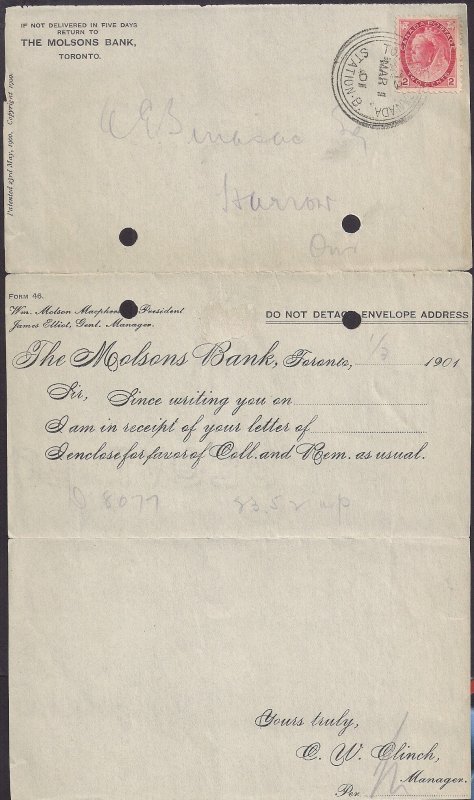 IF NOT DELIVERED IN FIVE DAYS
RETURN TO
THE MOLSONS BANK,
TORONTO.
Patented 23rd May, 1900. Copyright 1900.
CANADA
STATION B.
MAR 1
01
2 2
Harrow
Ont
FORM 46.
Wm. Molson Macpherson President
James Elliot, Genl. Manager.
DO NOT DETACH ENVELOPE ADDRESS
The Molsons Bank, Toronto, 1/3 1901
Sir, Since writing you on
I am in receipt of your letter of
I enclose for favor of Coll. and Rem. as usual.
8077 83.52
Yours truly,
C. W. Clinch,
Manager.
Per